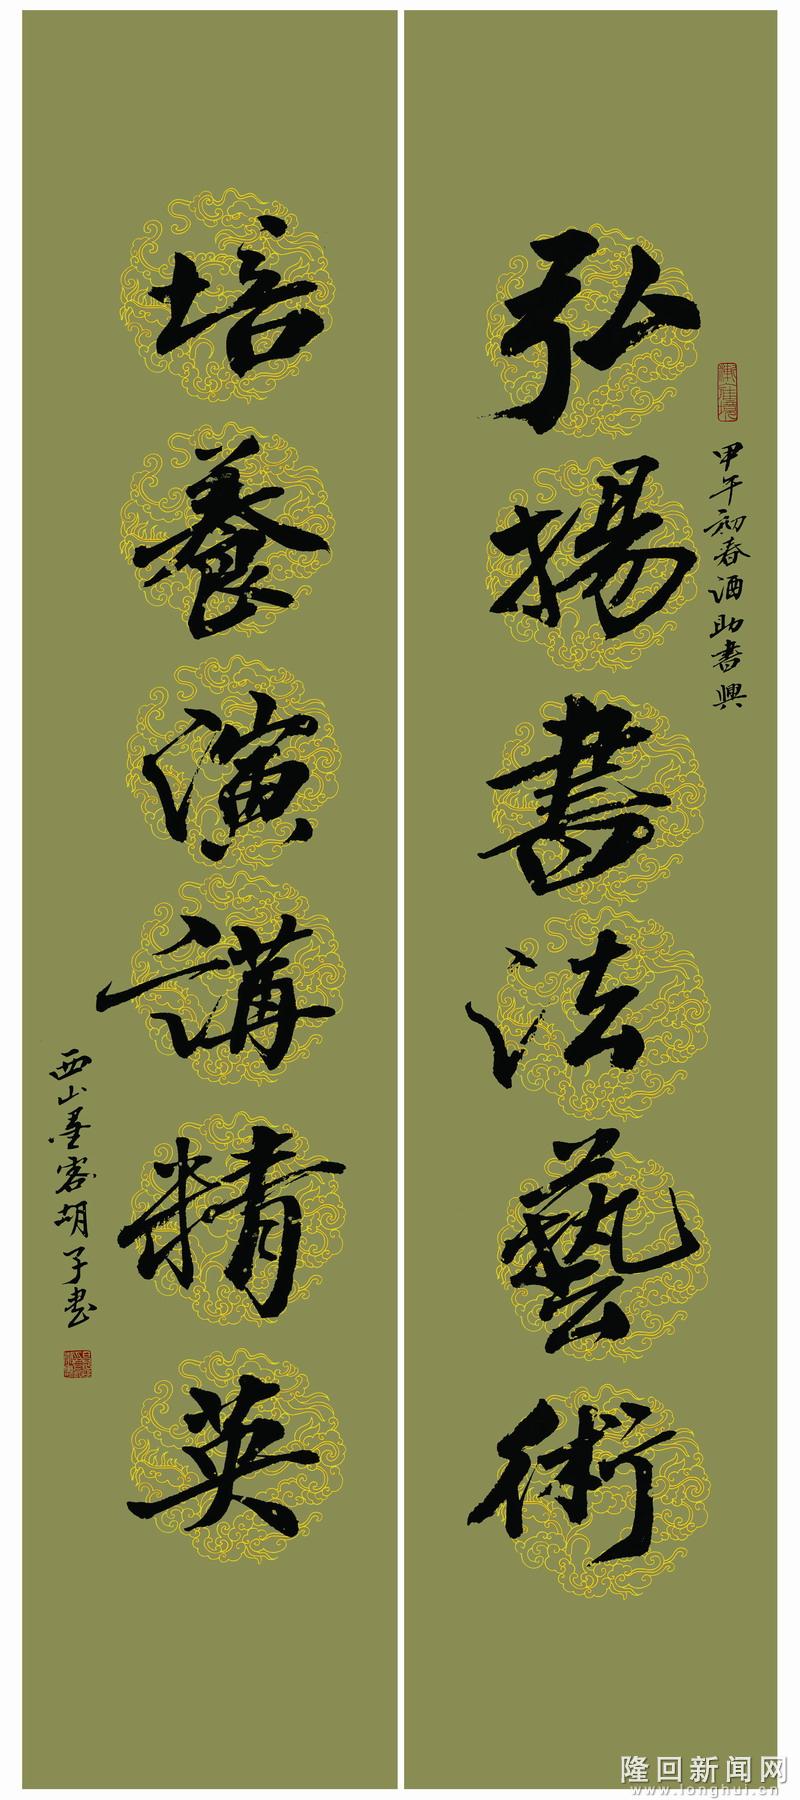 弘揚書法藝術
甲午初春酒助書興
培養演講精英
西山墨客胡子书
隆回新闻网
www.longhui.cn